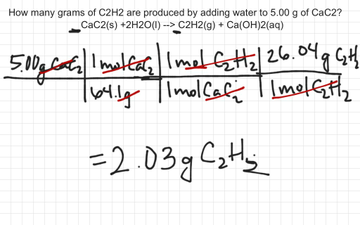 How many grams of C2H2 are produced by adding water to 5.00 g of CaC2?
CaC2(s) +2H2O(l) --> C2H2(g) + Ca(OH)2(aq)
5.00g CaC2 | 1 mol CaC2 | 1 mol C2H2 | 26.04 g C2H2
64.1g | 1 mol CaC2 | 1 mol C2H2
=2.03g C2H2